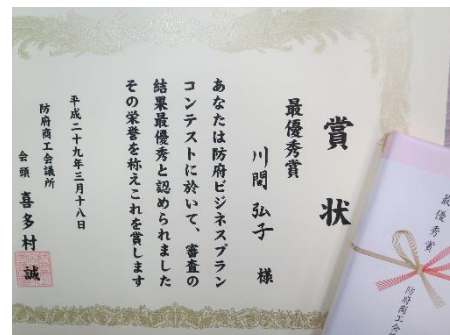 賞状
最優秀賞
川間弘子 様
あなたは防府ビジネスプラン
コンテストに於いて、審査の
結果最優秀と認められました
その栄誉を称えこれを賞します
平成二十九年三月十八日
防府商工会議所
会頭 喜多村 誠
最優秀賞
防府商工会